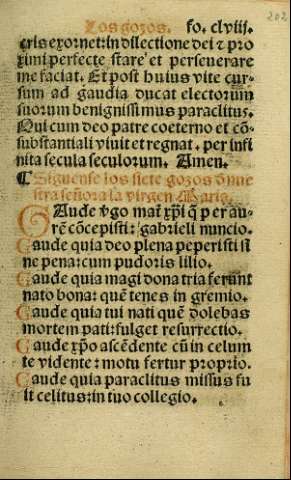 Los gozos. fo. clviij.
cris exornet: in dilectione dei ⁊ pro
ximi perfecte stare et perseuerare
me faciat. Et post huius vite cur
sum ad gaudia ducat electorum
suorum benignissimus paraclitus.
Qui cum deo patre coeterno et cõ-
substantiali viuit et regnat. per infi
nita secula seculorum. Amen.
¶ Siguense los siete gozos d'nue
stra señora la virgen Maria.
GAude v'go mat' xp̃i q̃ per au-
rẽ cõcepisti: gabrieli nuncio.
Gaude quia deo plena peperisti si
ne pena: cum pudoris lilio.
Gaude quia magi dona tria ferunt
nato bona: quẽ tenes in gremio.
Gaude quia tui nati quẽ dolebas
mortem pati: fulget resurrectio.
Gaude xp̃o ascẽdente cũ in celum
te vidente: motu fertur proprio.
Gaude quia paraclitus missus fu
it celitus: in tuo collegio.
202